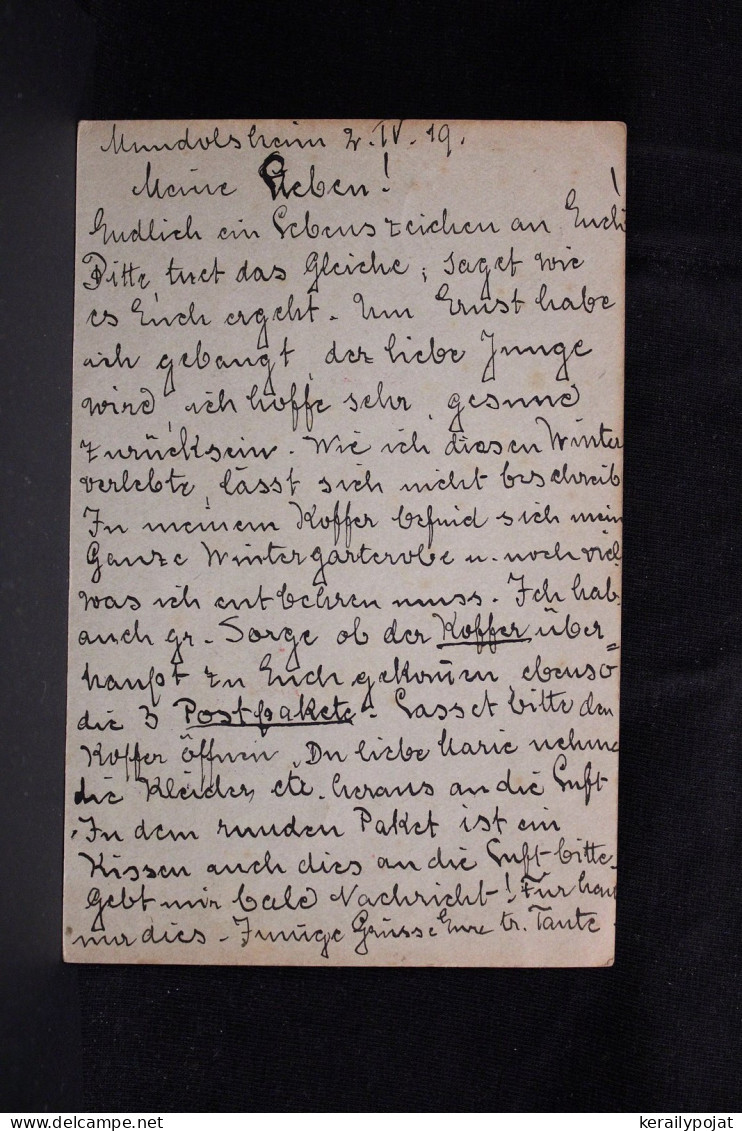 Mundolsheim 2. IV. 19.
Meine Lieben!
Endlich ein Lebenszeichen an Euch!
Bitte tuet das Gleiche, saget wie
es Euch ergeht. Um Ernst habe
ich gebangt, der liebe Junge
wird, ich hoffe sehr, gesund
zurücksein. Wie ich diesen Winter
verlebte, lässt sich nicht beschreib
In meinem Koffer befind sich mein
Ganze Wintergarterobe u. noch viel
was ich entbehren muss. Ich hab
auch gr. Sorge ob der Koffer über=
haupt zu Euch gekom̄en, ebenso
die 3 Postpakete. Lasset bitte den
Koffer öffnen, Du liebe Marie nehme
die Kleider, etc. heraus an die Luft
In dem runden Paket ist ein
Kissen auch dies an die Luft bitte.
Gebt mir bald Nachricht! Für heut
nur dies. Innige Grüsse Eure tr. Tante
© www.delcampe.net
kerailypojat